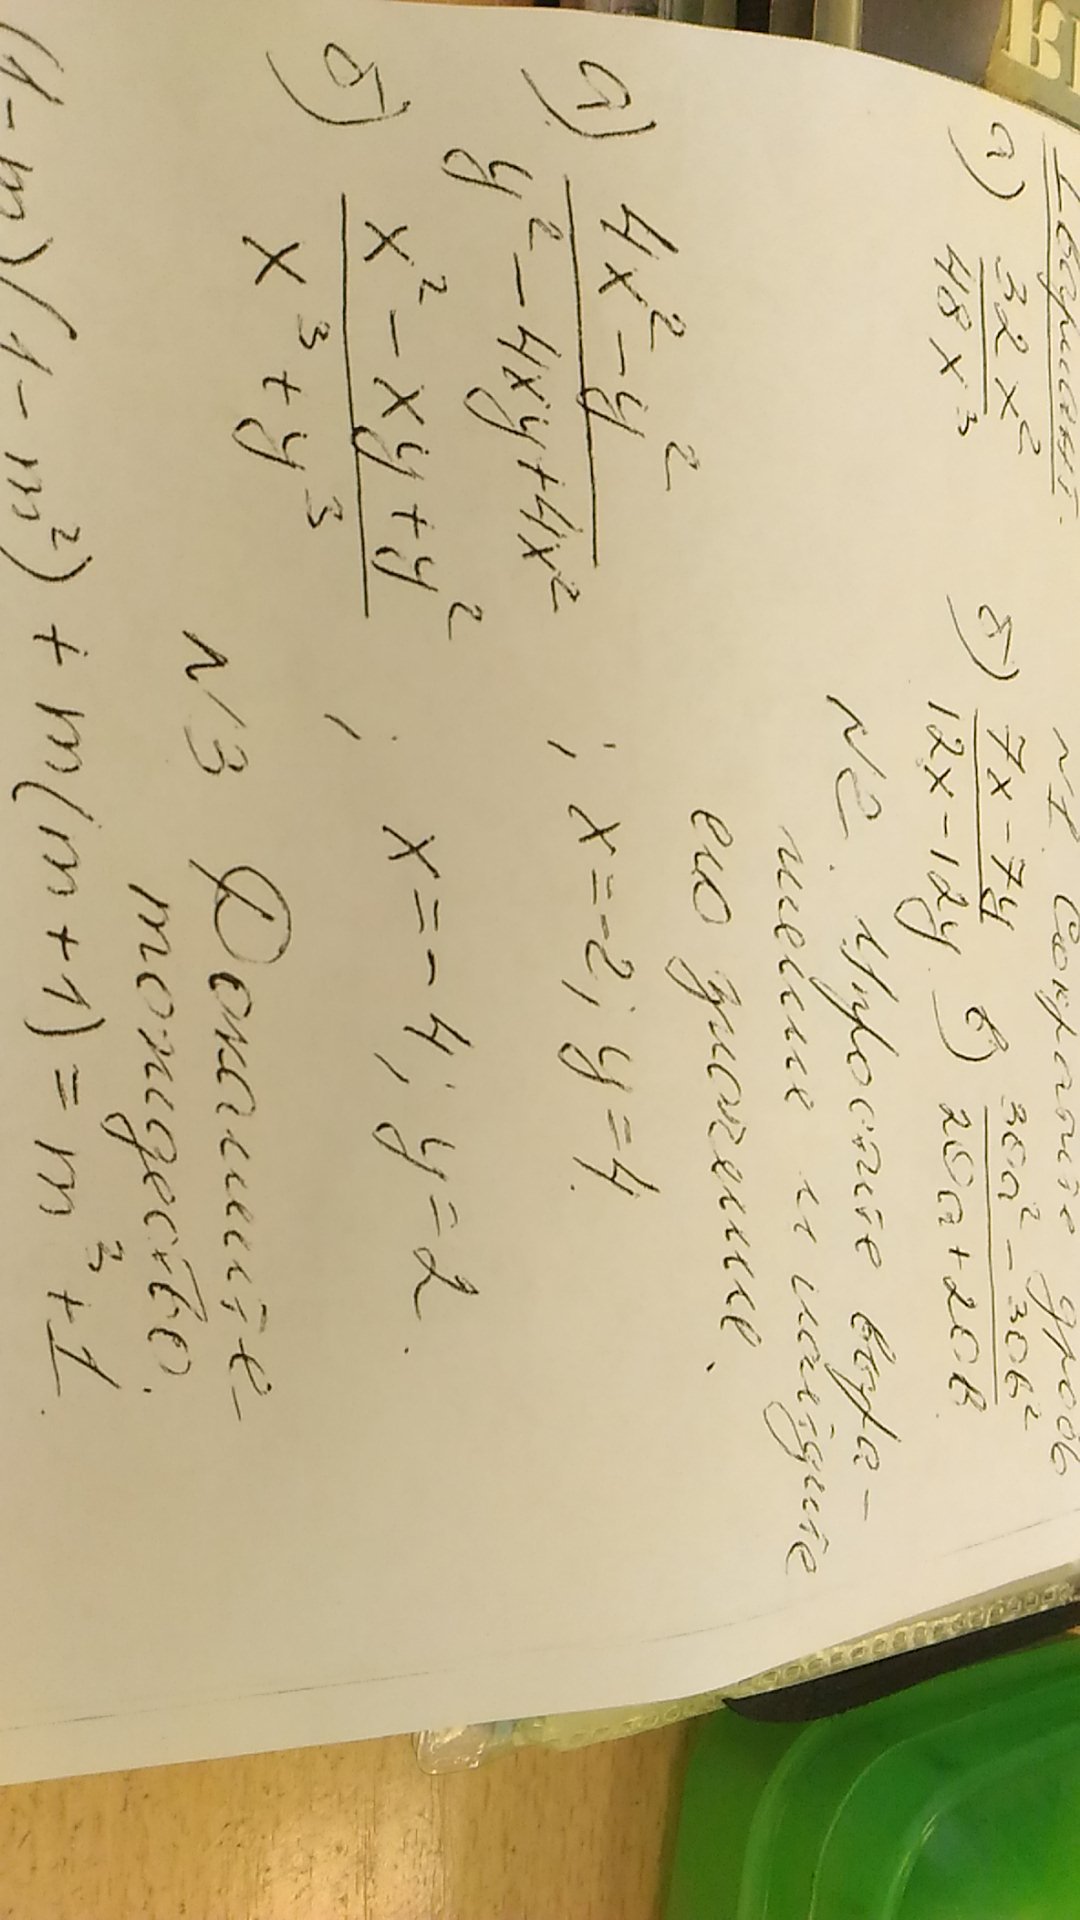 I вариант. №1. Сократите дробь
а) 32x²/48x³ б) 7x-7y/12x-12y в) 30a²-30b²/20a+20b
№2. Упростите выра-
жение и найдите
его значение.
а) 4x²-y²/y²-4xy+4x² ; x=-2; y=4.
б) x²-xy+y²/x³+y³ ; x=-4; y=2.
№3 Докажите
тождество.
(1-m)(1-m²)+m(m+1)=m³+1.